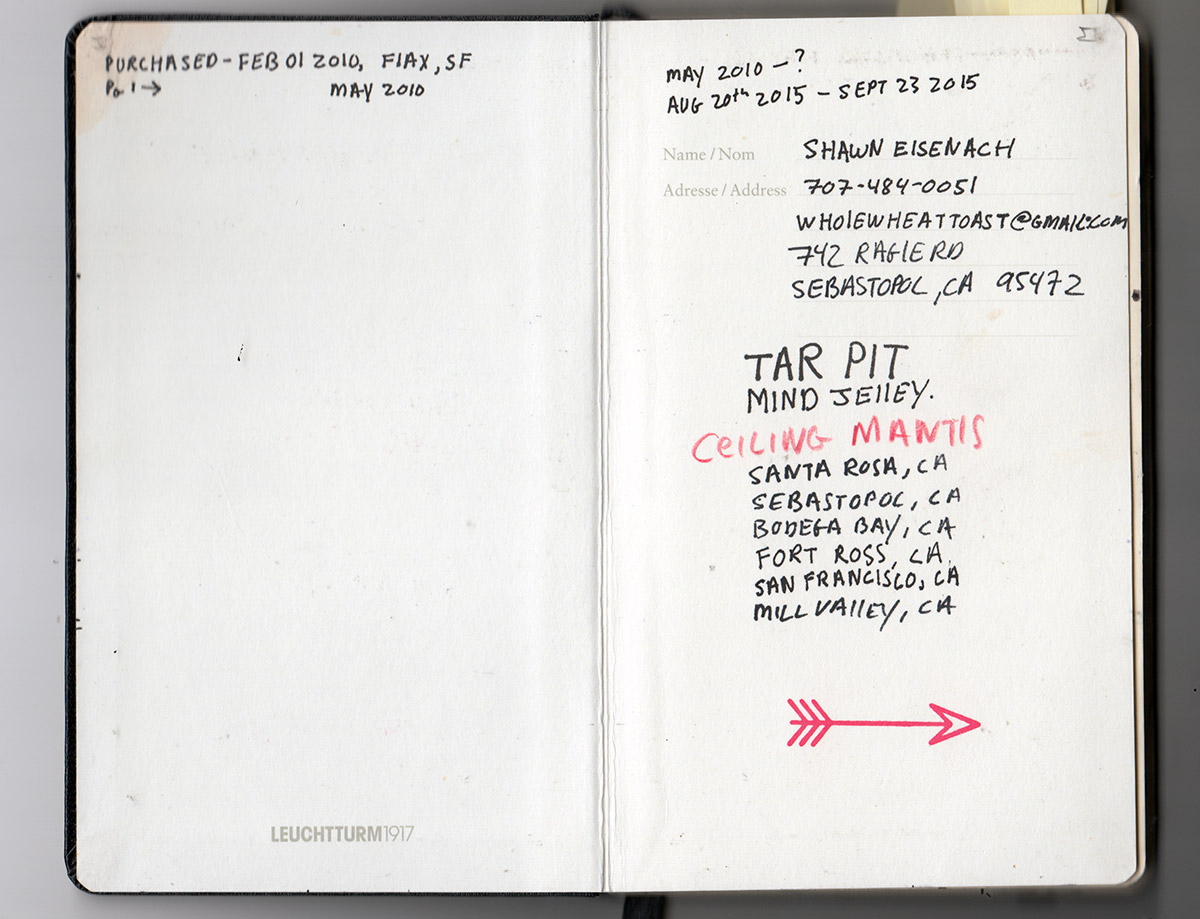 PURCHASED - FEB 01 2010, FLAX, SF
PG 1 → MAY 2010
LEUCHTTURM1917
MAY 2010 - ?
AUG 20th 2015 - SEPT 23 2015
Name / Nom SHAWN EISENACH
Adresse / Address 707-484-0051
WHOlEWHEATTOAST@GMAIL.COM
742 RAGlE RD
SEBASTOPOL, CA 95472
TAR PIT
MIND JEllEY.
CeILING MANTIS
SANTA ROSA, CA
SEBASTOPOL, CA
BODEGA BAY, CA
FORT ROSS, CA
SAN FRANCISCO, CA
MILL VAllEY, CA